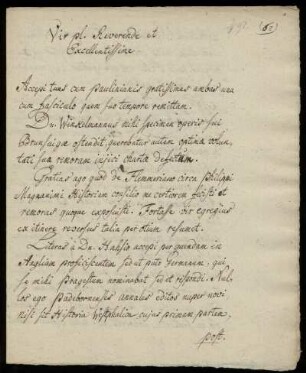 Vir pl. Reverende et
Excellentissime
Accepi tuas cum Paulinianis gratissimas ambas una
cum fasciculo quem suo tempore remittam.
Dn. Winkelmannus mihi specimen operis sui
ostendit, querebatur autem optimae volun
tati suae remoram injici chartae defectum.
Gratias ago quod de Flemmeriano circa Philippi
Magnanimi Historiam consilio me certiorem fecisti et
remoras quoque exposuisti. Fortasse vir egregius
ex itinere reversus talia per otium resumet.
Literas a Dn. Hakio accepi per quendam in
Angliam proficiscentem sed ut puto Germanum, qui
se mihi Pragestum nominabat sed et respondi. Nul
los ego Paderbornenses annales editos nuper novi
nisi sit Historia Westphaliae cujus primam partem,
post.